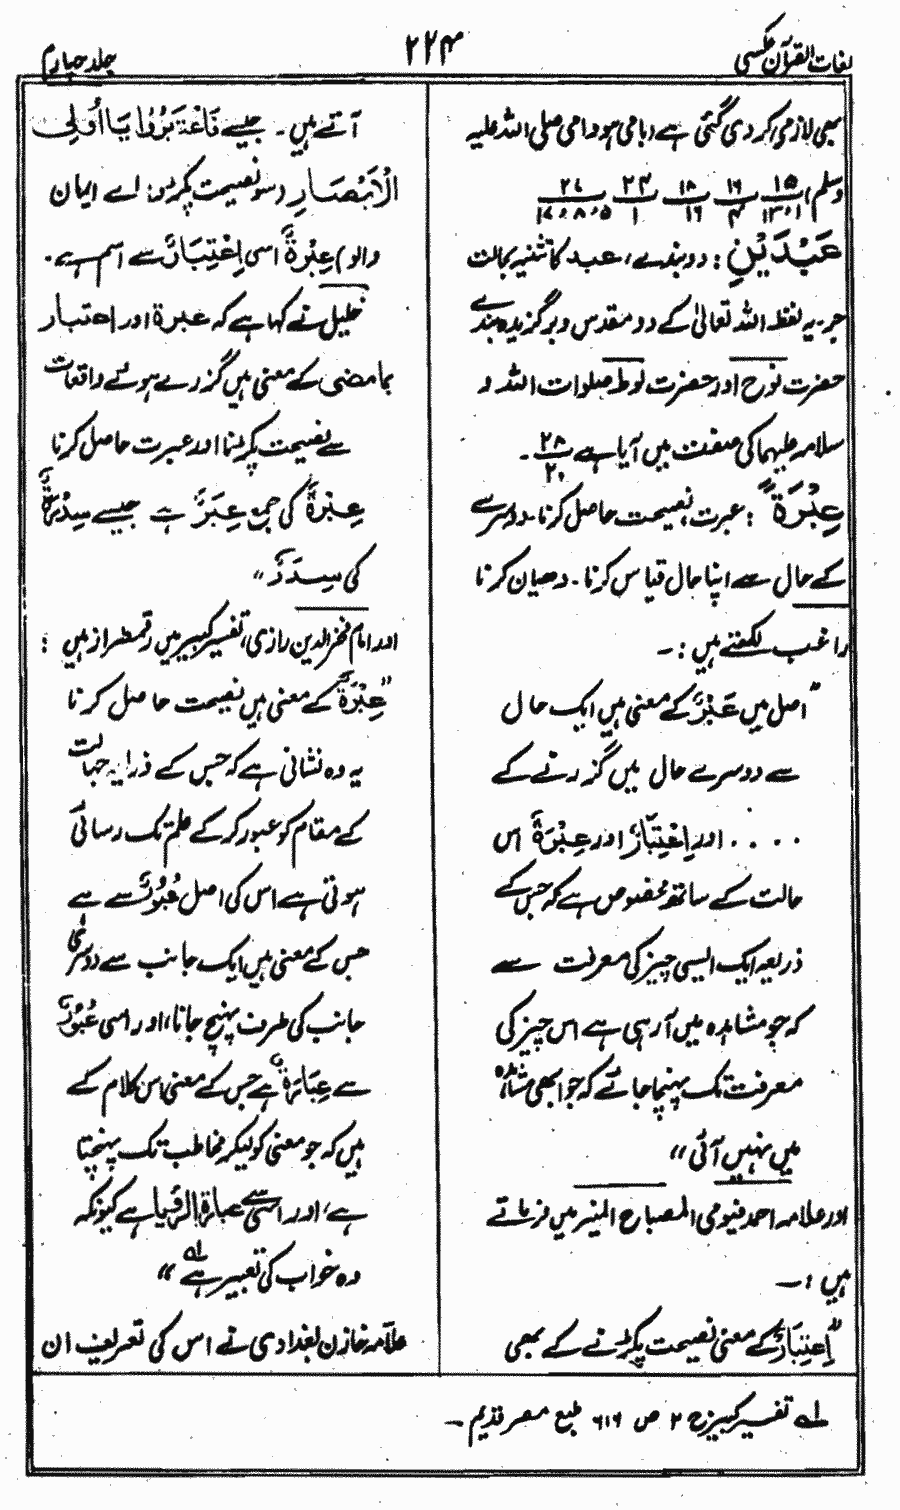 لغات القرآن عکسی
۲۲۴
جلد چہارم
بھی لازمی کر دی گئی ہے دبامی ہودامی صلی اللہ علیہ
وسلم) ۱۵ ۱۶ ۱۸ ۲۳ ۲۷
۱۳،۱ ۴ ۱۶ ۱ ۵،۸،۱۷
عَبْدَيْنِ : دو بندے، عبد کا تثنیہ بحالت
جر۔ یہ لفظ اللہ تعالیٰ کے دو مقدس و برگزیدہ بندے
حضرت نوح اور حضرت لوط صلوات اللہ و
سلامہ علیہما کی صفت میں آیا ہے ۲۸ ۔
۲۰
عِبْرَةٌ : عبرت، نصیحت حاصل کرنا۔ دوسرے
کے حال سے اپنا حال قیاس کرنا۔ دھیان کرنا
راغب لکھتے ہیں :۔
"اصل میں عَبْرٌ کے معنی ہیں ایک حال
سے دوسرے حال میں گزرنے کے
.... اور اِعْتِبَارٌ اور عِبْرَةٌ اس
حالت کے ساتھ مخصوص ہے کہ جس کے
ذریعہ ایک ایسی چیز کی معرفت سے
کہ جو مشاہدہ میں آ رہی ہے اس چیز کی
معرفت تک پہنچا جائے کہ جو ابھی مشاہدہ
میں نہیں آئی"
اور علامہ احمد فیومی المصباح المنیر میں فرماتے
ہیں :۔
"اِعْتِبَارٌ کے معنی نصیحت پکڑنے کے بھی
آتے ہیں۔ جیسے فَاعْتَبِرُوا يَا أُولِي
الْأَبْصَارِ (سو نصیحت پکڑو؛ اے ایمان
والو) عِبْرَةٌ اسی اِعْتِبَارٌ سے اسم ہے۔
خلیل نے کہا ہے کہ عبرة اور اعتبار
بما مضی کے معنی ہیں گزرے ہوئے واقعات
سے نصیحت پکڑنا اور عبرت حاصل کرنا
عِبْرَةٌ کی جمع عِبَرٌ ہے جیسے سِدْرَةٌ
کی سِدَرٌ"
اور امام فخر الدین رازی، تفسیر کبیر میں رقمطراز ہیں :
"عِبْرَةٌ کے معنی ہیں نصیحت حاصل کرنا
یہ وہ نشانی ہے کہ جس کے ذرایہ جہالت
کے مقام کو عبور کر کے علم تک رسائی
ہوتی ہے اس کی اصل عُبُوْرٌ سے ہے
جس کے معنی ہیں ایک جانب سے دوسری
جانب کی طرف پہنچ جانا، اور اسی عُبُوْرٌ
سے عِبَارَةٌ ہے جس کے معنی اس کلام کے
ہیں کہ جو معنی کو لیکر مخاطب تک پہنچتا
ہے، اور اسی سے عبارة الرؤیا ہے کیونکہ
وہ خواب کی تعبیر ہے لہ"
علامہ خازن بغدادی نے اس کی تعریف ان
لہ تفسیر کبیر ج ۲ ص ۶۱۶ طبع مصر قدیم۔